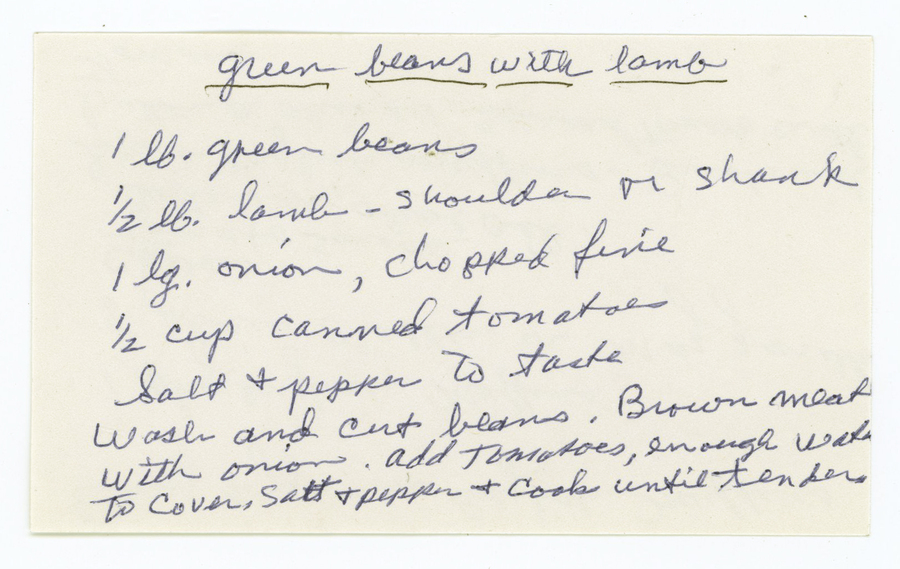 green beans with lamb
1 lb. green beans
1/2 lb. lamb - shoulder or shank
1 lg. onion, chopped fine
1/2 cup canned tomatoes
Salt + pepper to taste
Wash and cut beans. Brown meat
with onion. add tomatoes, enough wate
to cover. Salt + pepper + cook until tender.